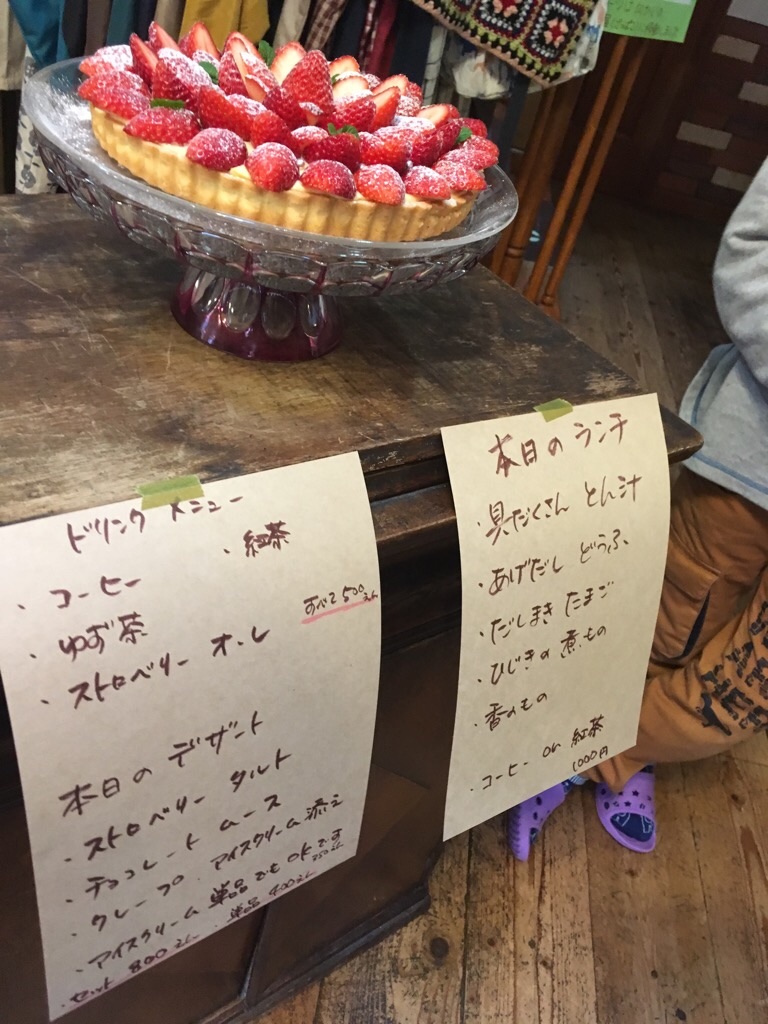 ドリンク メニュー
・コーヒー ・紅茶
・ゆず茶
すべて500えん
・ストロベリー オ・レ
本日の デザート
・ストロベリー タルト
・チョコレート ムース
・クレープ アイスクリーム添え
・アイスクリーム 単品でもOKです
250えん
・セット 800えん ・単品 400えん
本日の ランチ
・具だくさん とん汁
・あげだし どうふ
・だしまき たまご
・ひじきの 煮もの
・香のもの
・コーヒー or 紅茶
1000円